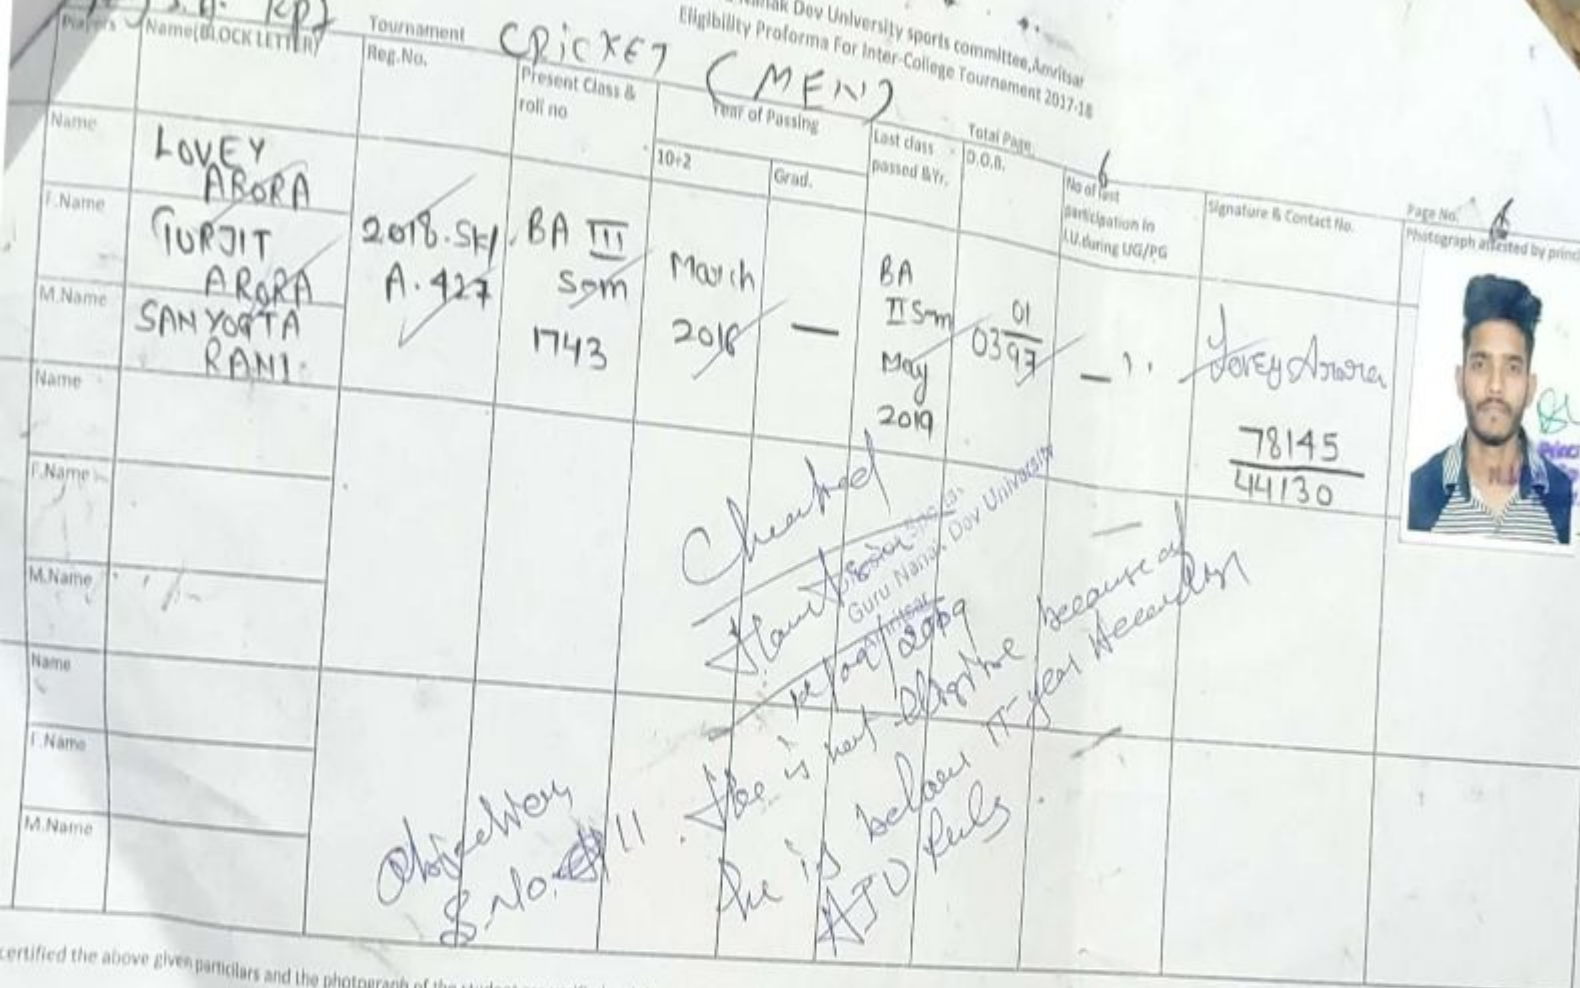 Nanak Dev University sports committee,Amritsar
Eligibility Proforma For Inter-College Tournament 2017-18
Tournament CRICKET (MEN)
Total Page. 6
Page No.
Players Name(BLOCK LETTER)
Reg.No.
Present Class &
roll no
Year of Passing
10+2
Grad.
Last class
passed &Yr.
D.O.B.
No of last
participation in
I.U.during UG/PG
Signature & Contact No.
Photograph attested by princi
Name
LOVEY
ARORA
F.Name
GURJIT
ARORA
M.Name
SANYOGTA
RANI
2018.SKJ
A.427
BA III
Sem
1743
March
2016
—
BA
II Sem
May
2019
01
03 97
Lovey Arora
78145
44130
Name
F.Name
M.Name
Name
F.Name
M.Name
Checked
Guru Nanak Dev University
Amritsar
Objection
S.No. 11. He is not eligible because of
he is below year
AIU Rules.
certified the above given particilars and the photograph of the